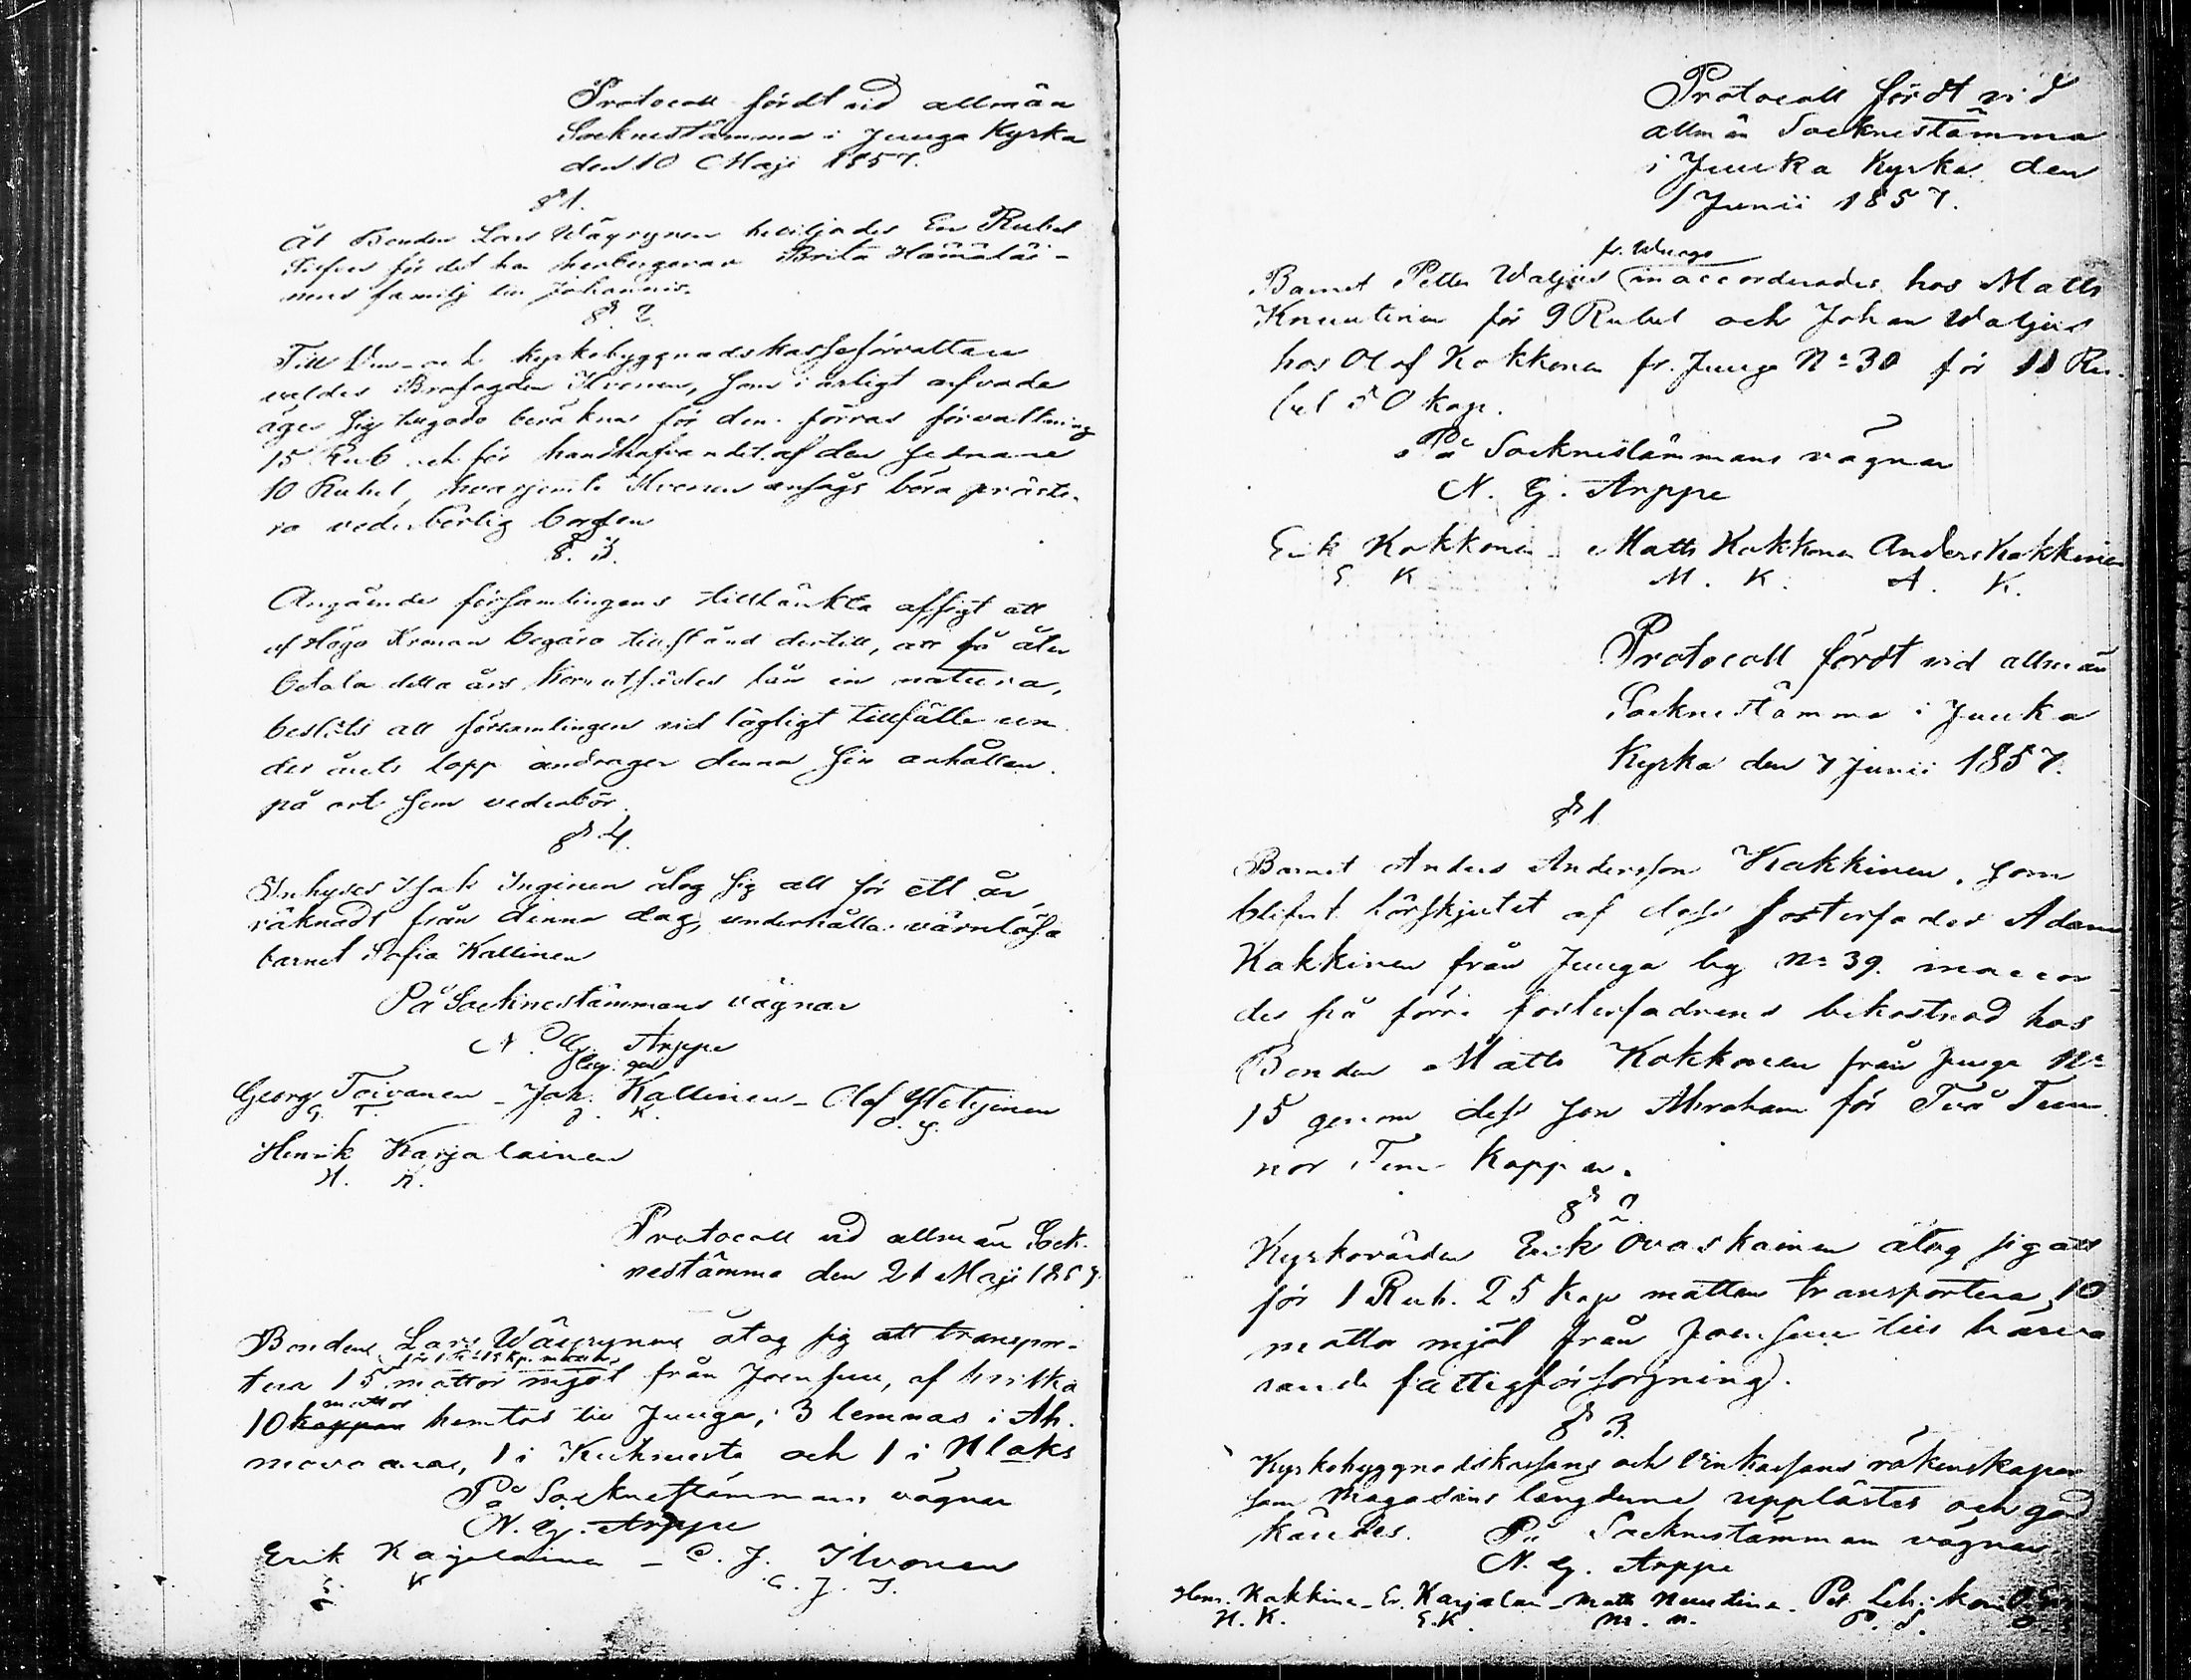 Protocoll fördt vid allmän
Socknestämma i Juuga Kyrka
den 10 Maji 1857.
§ 1.
Åt Bonden Lars Wäyrynen beviljades En Rubel
Silfver för det han herbergerar Brita Hämäläi-
nens familj till Johannis.
§. 2.
Till Vin- och Kyrkobyggnadskasseförvaltare
valdes Brofogden Ilvonen, som i årligt arfvode
äger sig tillgodo beräkna för den förras förvaltning
15 Rub och för handhafvandet af den sednare
10 Rubel, hvarjemte Ilvonen ansågs böra præste-
ra vederbörlig borgen
§. 3.
Angående församlingens tilltänkta afsigt att
af Höga Kronan begära tillstånd dertill, att få åter
betala detta års Kornutsädes lån in natura,
beslöts att församlingen vid lägligt tillfälle un
der årets lopp andrager denna sin anhållan
på ort som vederbör.
§ 4.
Inhyses Isak Inginen åtog sig att för ett år,
räknadt från denna dag, underhålla värnlösa
barnet Sofia Kallinen
På Socknestämmans vägnar
N. G. Arppe
Georg Toivanen - Joh. Kallinen - Olof
G. T. J. K. O.
Henrik Karjalainen
H. K.
Protocoll vid allmän Sock-
nestämma den 21 Maji 1857
Bonden Lars Wäyrynen åtog sig att transpor-
tera 15 mattor mjöl från Joensuu, af hvilka
mattor
10 kappar hemtas till Juuga, 3 lemnas i Ah-
movaara, 1 i Kuhnusta och 1 i Wlaks
På Socknestämmans vägnar
N. G. Arppe
Erik Kajalainen - C. J. Ilvonen
E. K C. J. I.
Protocoll fördt vid
allmän Socknestämma
i Juuka Kyrka den
1 Junii 1857.
fr. Wuoge
Barnet Petter Waljus inaccorderades hos Matts
Knuutinen för 9 Rubel och Johan Waljus
hos Olof Kokkonen fr. Juuga No 30 för 11 Ru-
bel 50 kop.
På Socknestämmans vägnar
N. G. Arppe
Erik Kokkonen - Matts Kokkonen Anders Kakkinen
E. K M. K. A. K.
Protocoll fördt vid allmän
Socknestämma i Juuka
Kyrka den 7 Junii 1857.
§ 1
Barnet Anders Andersson Kakkinen, som
blifvit förskjutet af dess fosterfader Adam
Kakkinen från Juuga by No 39. inaccor-
des på förre fosterfadrens bekostnad hos
Bonden Matts Kokkonen från Juuga No
15 genom dess son Abraham för Två Tun-
nor Fem Kappar.
§ 2
Kyrkovärden Erik Ovaskainen åtog sig att
för 1 Rub. 25 Kop mattan transportera 10
mattor mjöl från Joensuu till härva
rande fattigförsörjning.
§ 3.
Kyrkobyggnadskassans och Vinkassans räkenskaper
som Magasins längderne upplästes och god
kändes. På Socknestämmans vägnar
N. G. Arppe
Henr. Kakkinen - Er. Karjalai - Matts Nuutinen - Pet.
H. K. E. K. M. N.